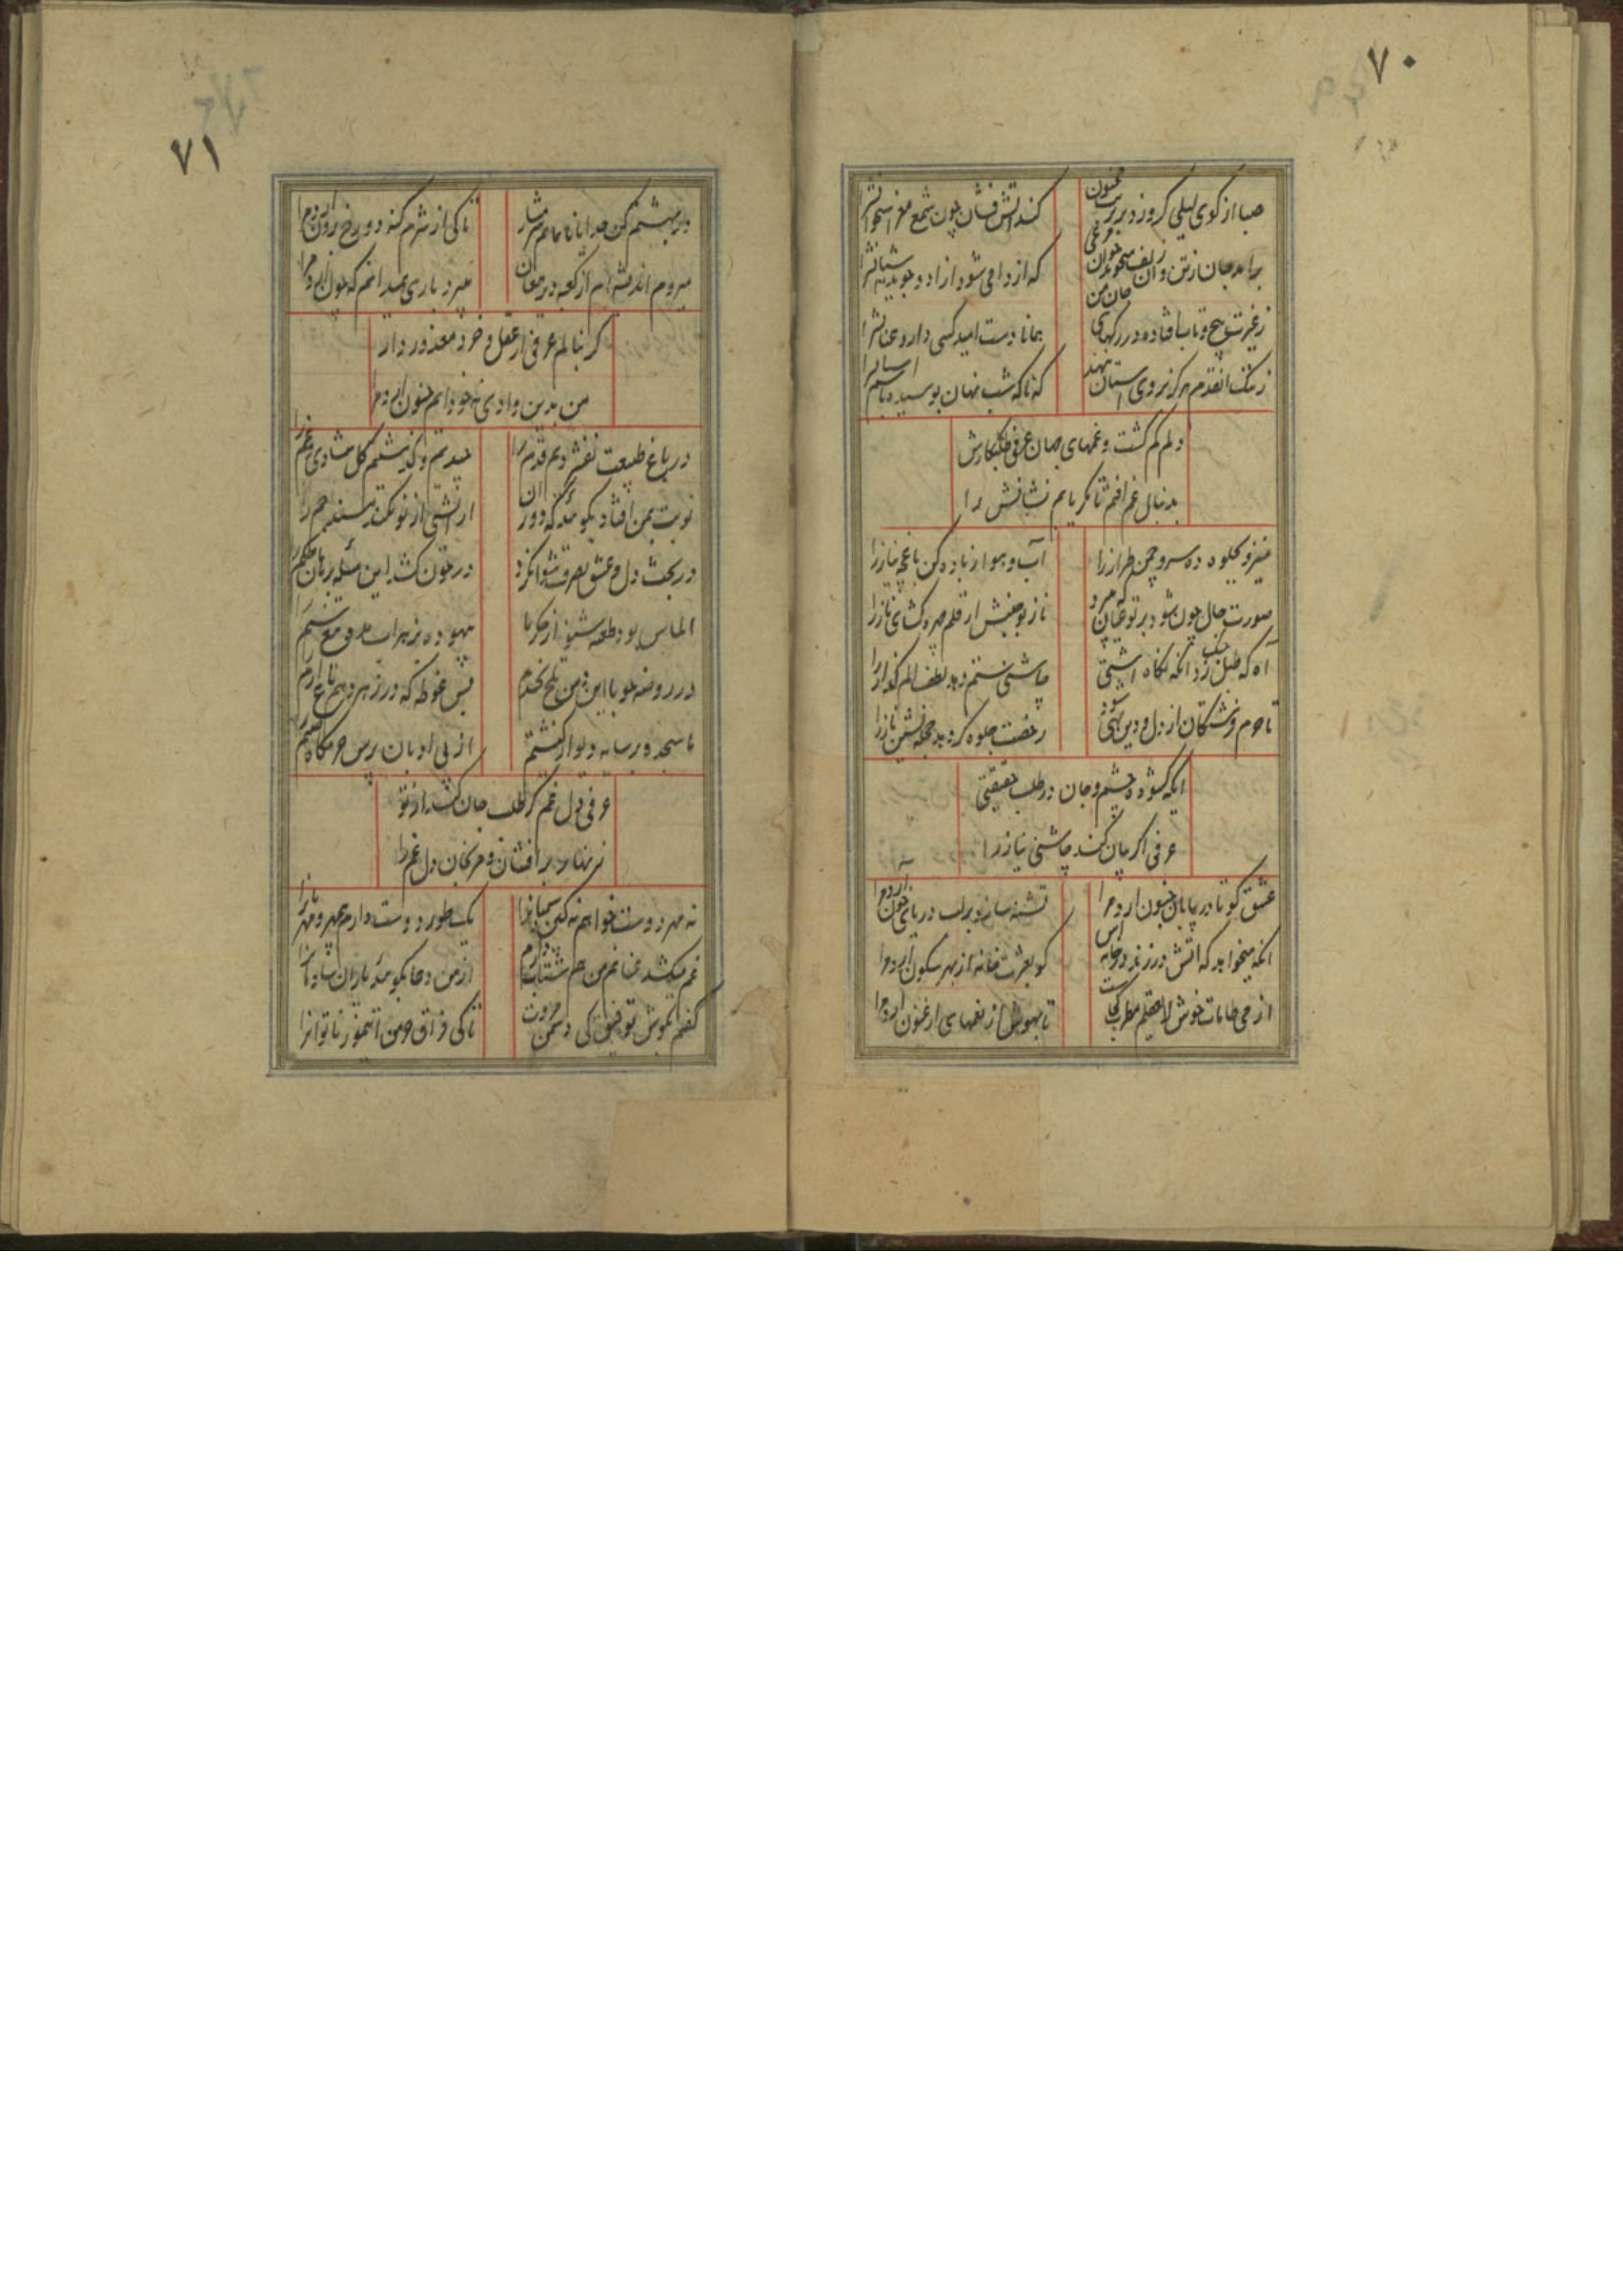 ۷۰
صبا از کوی لیلی گر وزد بر تربت مجنون
کند آتش فشان چون شمع مغز استخوانش را
برآمد جان ز تن وان زلف میجوید چو آن مرغی
که از دامی شود آزاد و جوید آشیانش را
ز غیرت پیچ و تاب افتاده در رگهای جان من
همانا دست امید کسی دارد عنانش را
ز ننگ آنقدم هرگز بروی آستان ننهد
که ناگه شب نهان بوسیده باشم آستانش را
دلم گم گشت و غمهای جهان عرفی طلبکارش
بدنبال غم افتم تا مگر یابم نشانش را
خیز و بجلوه ده سرو چمن طراز را
آب و هوا زیاده کن باغچه نیاز را
صورت حال چون شود بر تو عیان که میبرد
ناز تو جنبش از قلم چهره گشای ناز را
آه که طبل جنگ زد آنکه نگاه آشتی
چاشنی ستم دهد لطف الم گداز را
تا حرم فرشتگان از دل و دین تهی شود
رخصت جلوه گر دهد حجله نشین ناز را
ایکه گشوده چشم و جان در طلب حقیقتی
عرفی اگر بیان کند چاشنی نیاز را
عشق کو تا در بیابان جنون آرد مرا
تشنه سازد بر لب دریای خون آرد مرا
آنکه میخواهد که آتش در زند در خانه اس
کو بعزت خانه از بهر سکون آرد مرا
از می طامات خوش لایعقلم مطرب کجاست
تا بهوش از نغمهای ارغنون آرد مرا
۷۱
در بهشتم کن خدایا تا بمانم شرمسار
تا کی از شرم گنه دوزخ برون آرد مرا
میروم اندیشه‌ام از کعبه در دیر مغان
میبرد باری نمیدانم که چون آرد مرا
گر بنالم عرفی از عقل و خرد معذور دار
من بدین وادی نه خود آیم جنون آرد مرا
در باغ طبیعت نفشردیم قدم را
چیدیم و گذشتیم گل شادی و غم را
نوبت بمن افتاد بگوئید که دوران
آرایشی از نو بکند مسند جم را
در بحث دل و عشق تصرف نتوان کرد
در خون کشد این مسئله برهان حکم را
الماس بود طعمه شیر از جگر ما
بیهوده بزهراب مده موج ستم را
در روضه چو با این دل تلخ بخندم
بس غوطه که در زهر دهم باغ ارم را
تا سجده بر سایه دیوار کنشتیم
از بی ادبان پرس حرمگاه صنم را
عرفی دل غم گر طلب جان کند از تو
زنهار برافشان و مرنجان دل غم را
نه مهر دوست خواهم نه کین
یک طور دوست دارم مهر و
غم میکشد عنانم من هم شتاب دارم
از من دعا بگوئید یاران
گفتم بگوش توفیق کی دشمن مروت
تا کی فراق من ناتوان را